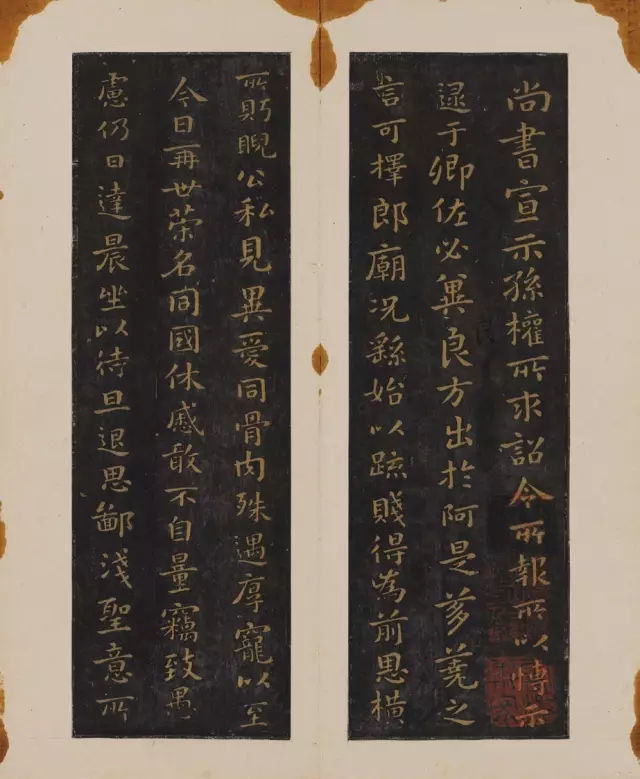 尚書宣示孫權所求詔令所報所以博示
逮于卿佐必冀良方出於阿是芻蕘之
言可擇郎廟況繇始以疏賤得為前恩橫
所盱睨公私見異愛同骨肉殊遇厚寵以至
今日再世榮名同國休慼敢不自量竊致愚
慮仍日達晨坐以待旦退思鄙淺聖意所